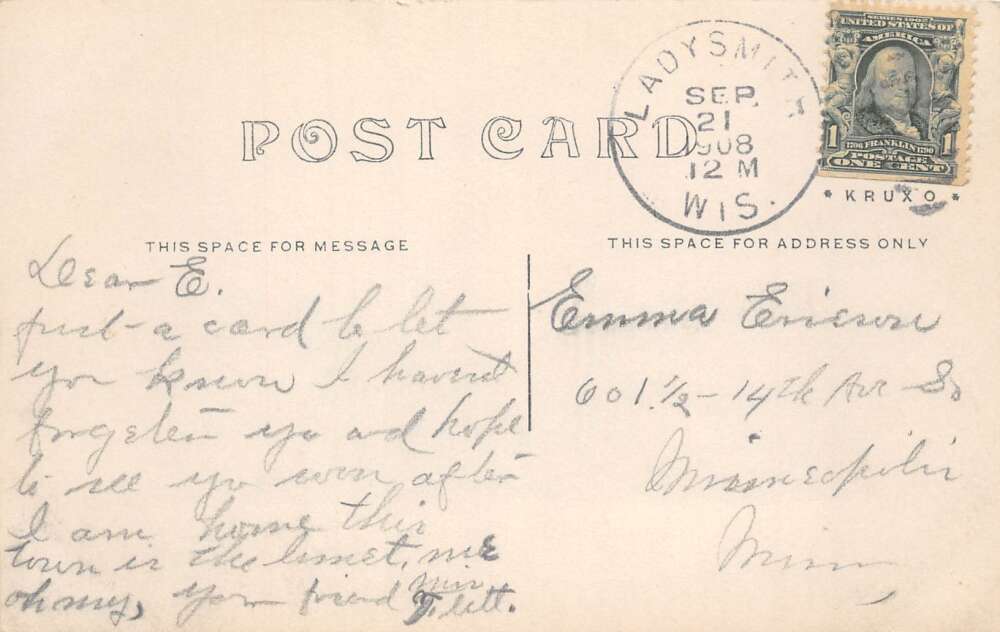 LADYSMITH
SEP.
21
1908
12 M
WIS.
SERIES 1902
UNITED STATES OF
AMERICA
1 1706 FRANKLIN 1790 1
POSTAGE
ONE CENT
* KRUXO *
POST CARD
THIS SPACE FOR MESSAGE
THIS SPACE FOR ADDRESS ONLY
Dear E.
just a card to let
you know I havent
forgoten you and hope
to see you soon after
I am home this
town is the limet, me
oh my, your friend
Emma Ericson
601 1/2 - 14th Ave So
Minneopilis
Minn